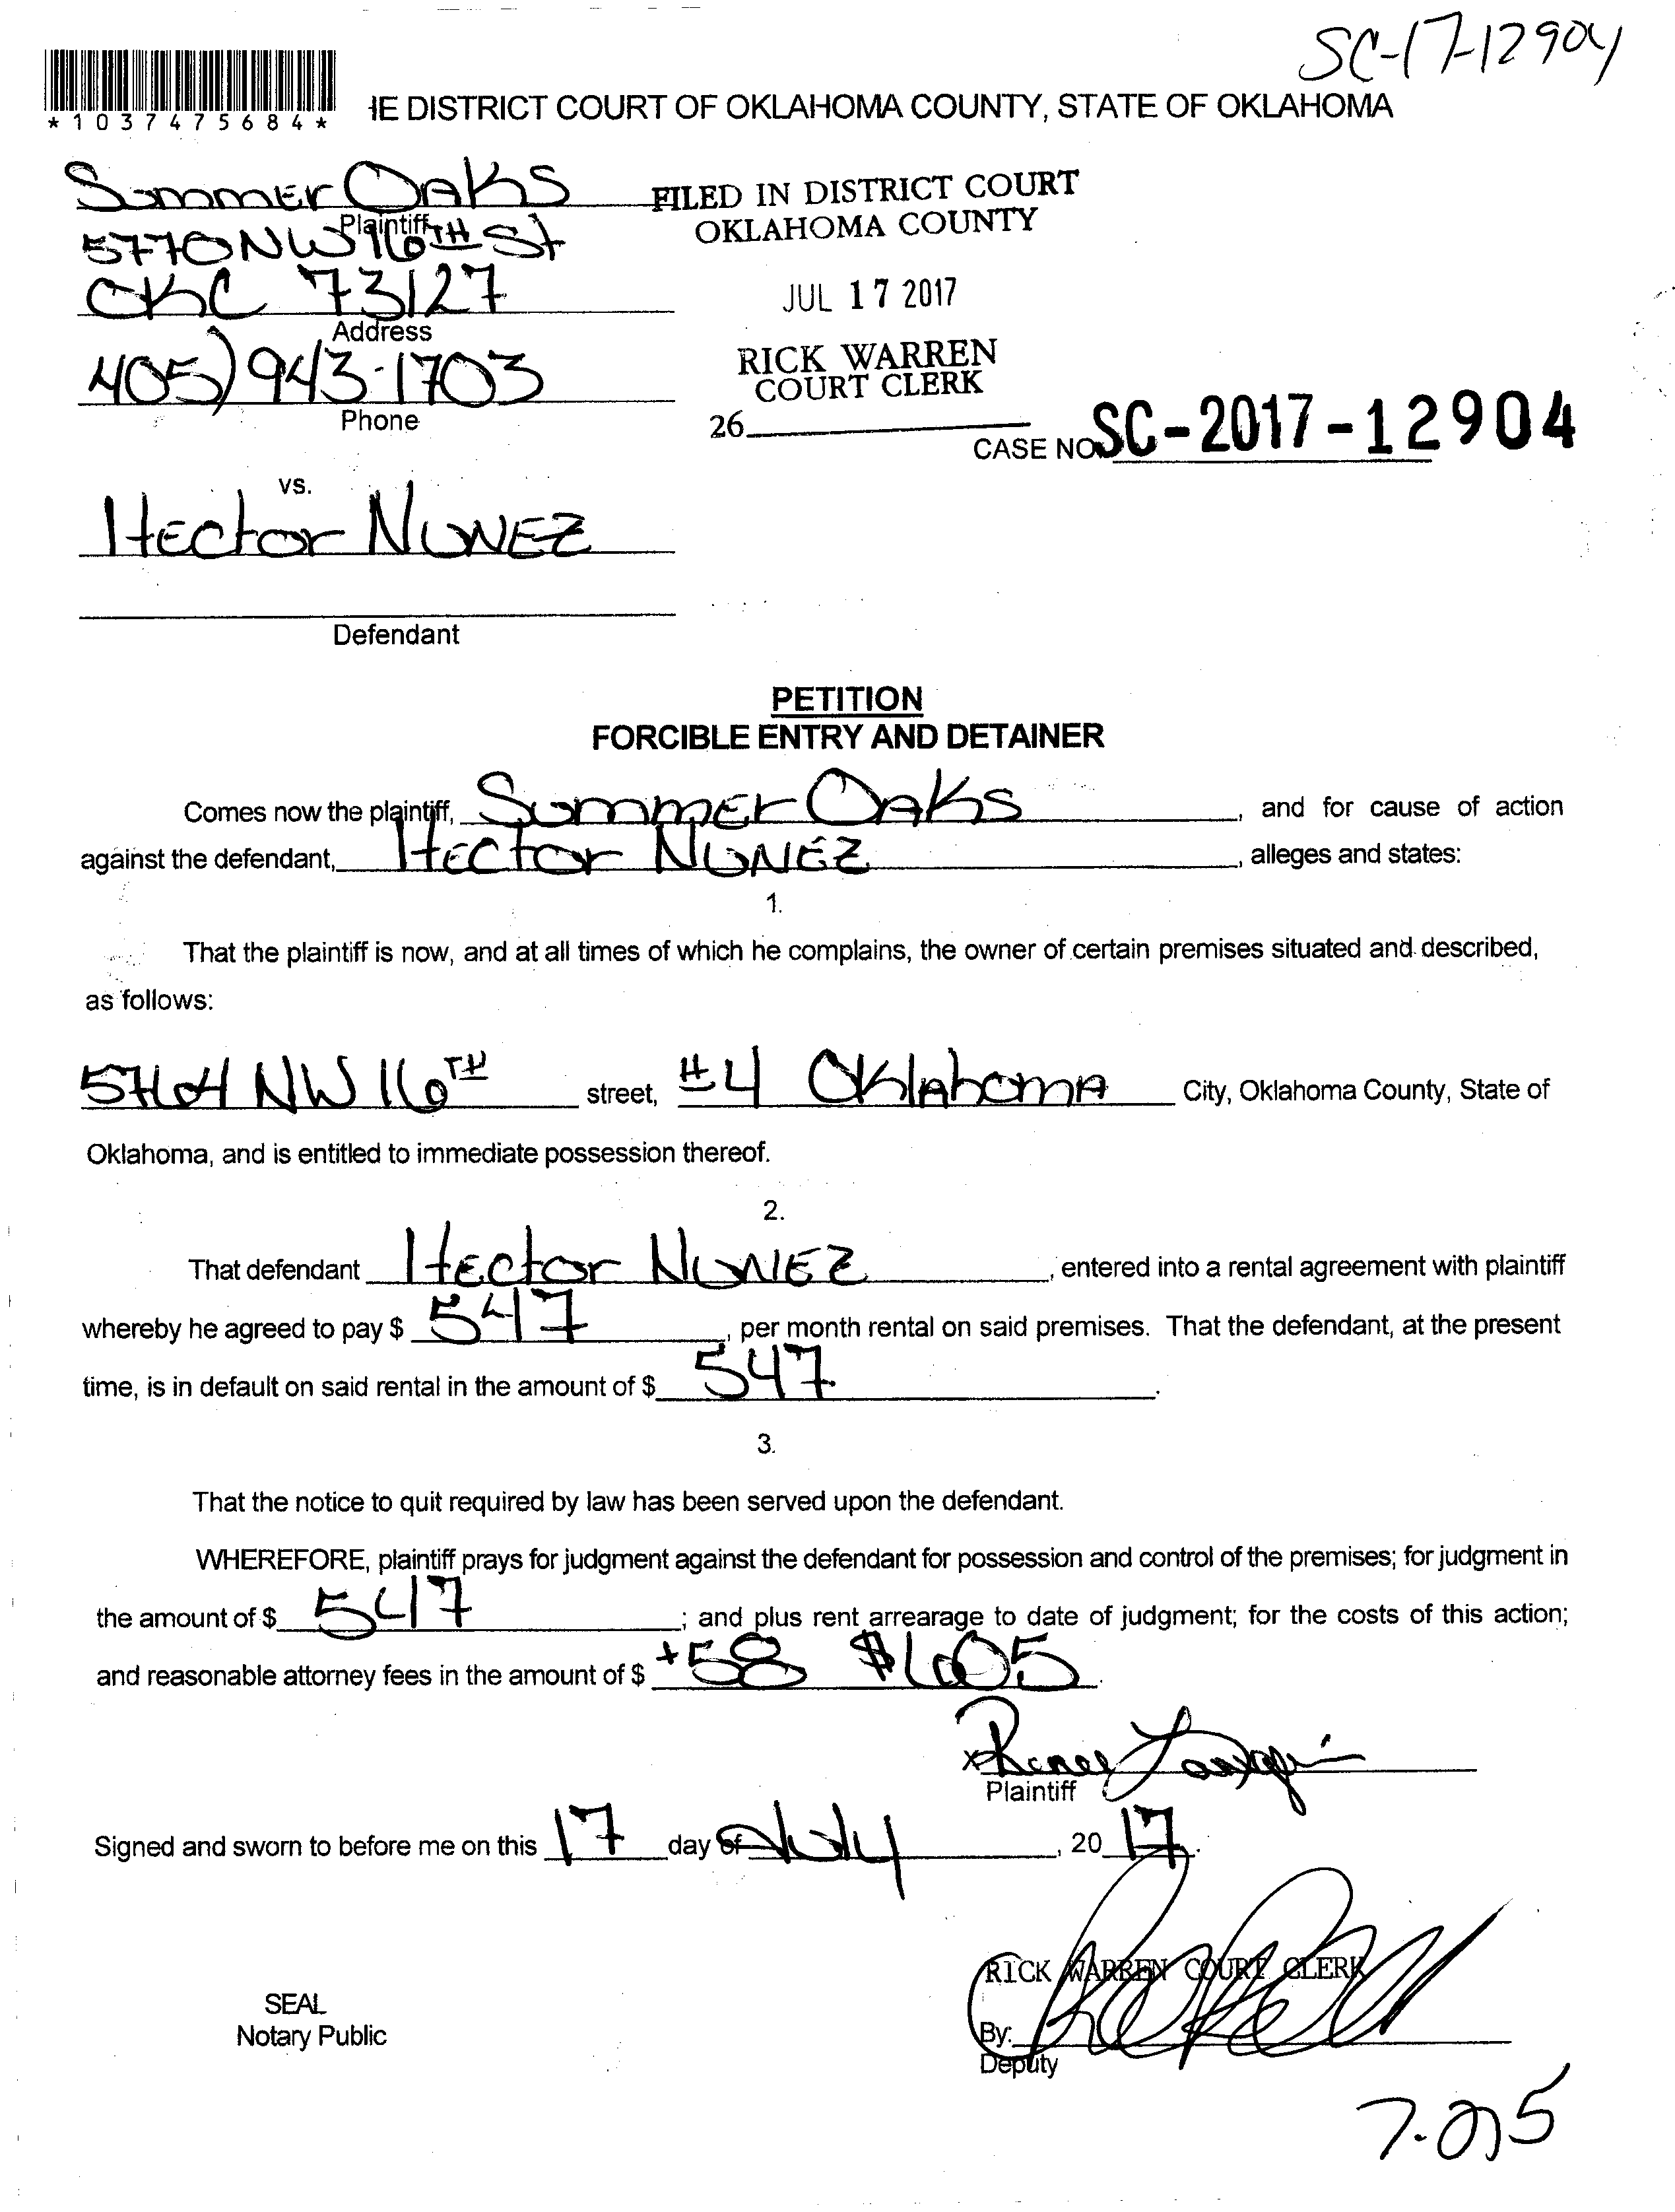 SC-17-12904
*1037475684*
HE DISTRICT COURT OF OKLAHOMA COUNTY, STATE OF OKLAHOMA
Summer Oaks
Plaintiff
5770 NW 16TH St
OKC 73127
Address
405) 943-1703
Phone
FILED IN DISTRICT COURT
OKLAHOMA COUNTY
JUL 17 2017
RICK WARREN
COURT CLERK
26
CASE NO. SC-2017-12904
vs.
Hector Nunez
Defendant
PETITION
FORCIBLE ENTRY AND DETAINER
Comes now the plaintiff, Summer Oaks, and for cause of action
against the defendant, Hector Nunez, alleges and states:
1.
That the plaintiff is now, and at all times of which he complains, the owner of certain premises situated and described,
as follows:
NW 16TH street, #4 Oklahoma City, Oklahoma County, State of
Oklahoma, and is entitled to immediate possession thereof.
2.
That defendant Hector Nunez, entered into a rental agreement with plaintiff
whereby he agreed to pay $ 547, per month rental on said premises. That the defendant, at the present
time, is in default on said rental in the amount of $ 547.
3.
That the notice to quit required by law has been served upon the defendant.
WHEREFORE, plaintiff prays for judgment against the defendant for possession and control of the premises; for judgment in
the amount of $ 547; and plus rent arrearage to date of judgment; for the costs of this action;
and reasonable attorney fees in the amount of $ +58 $605.
x Renee
Plaintiff
Signed and sworn to before me on this 17 day of July, 2017.
RICK WARREN COURT CLERK
SEAL
Notary Public
By:
Deputy